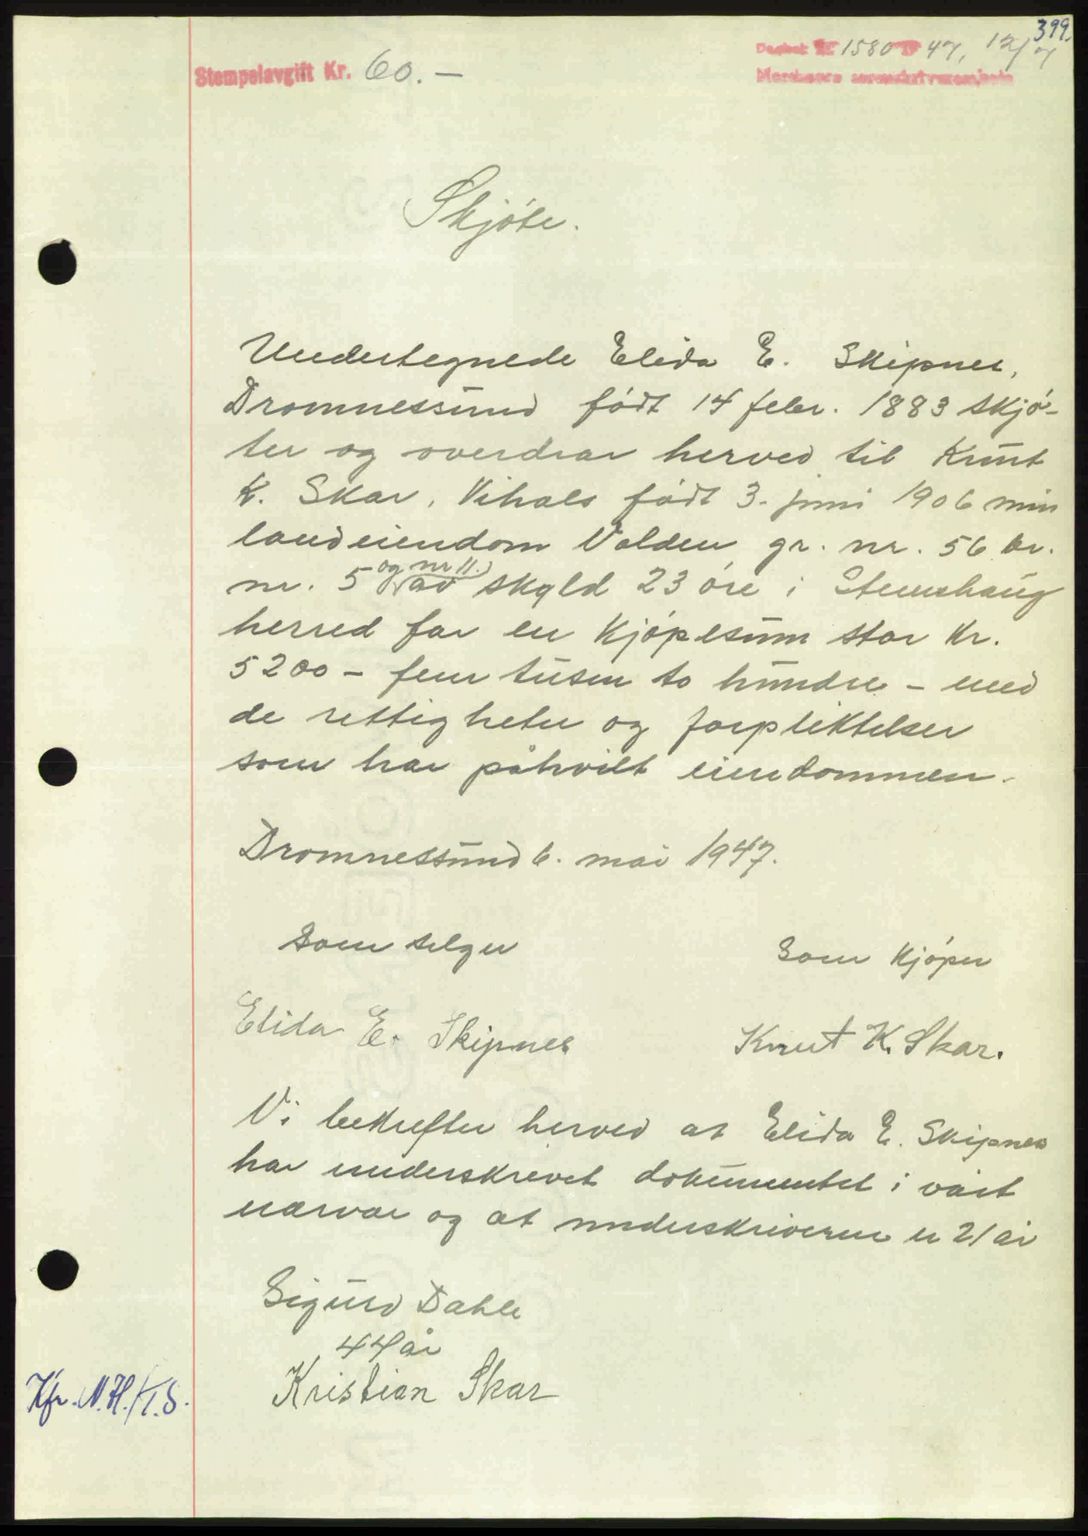 399.
Stempelavgift Kr. 60.–
Dagbok Nr. 1580 19 47, 12/7
Nordmøre sorenskriverembete
Skjøte.
Undertegnede Elida E. Skipnes,
Dromnessund født 14 febr. 1883 skjø-
ter og overdrar herved til Knut
K. Skar, Vihals født 3. juni 1906 min
landeiendom Volden gr. nr. 56 br.
nr. 5 og nr 11. av skyld 23 øre i Stemshaug
herred for en kjøpesum stor kr.
5200 – fem tusen to hundre – med
de rettigheter og forpliktelser
som har påhvilt eiendommen.
Dromnessund 6. mai 1947.
Som selger
Som kjøper
Elida E. Skipnes
Knut K. Skar.
Vi bekrefter herved at Elida E. Skipnes
har underskrevet dokumentet i vårt
nærvær og at underskriveren er 21 år
Sigurd Dahle
44 år
Kristian Skar
Kfr. N.H./T.S.